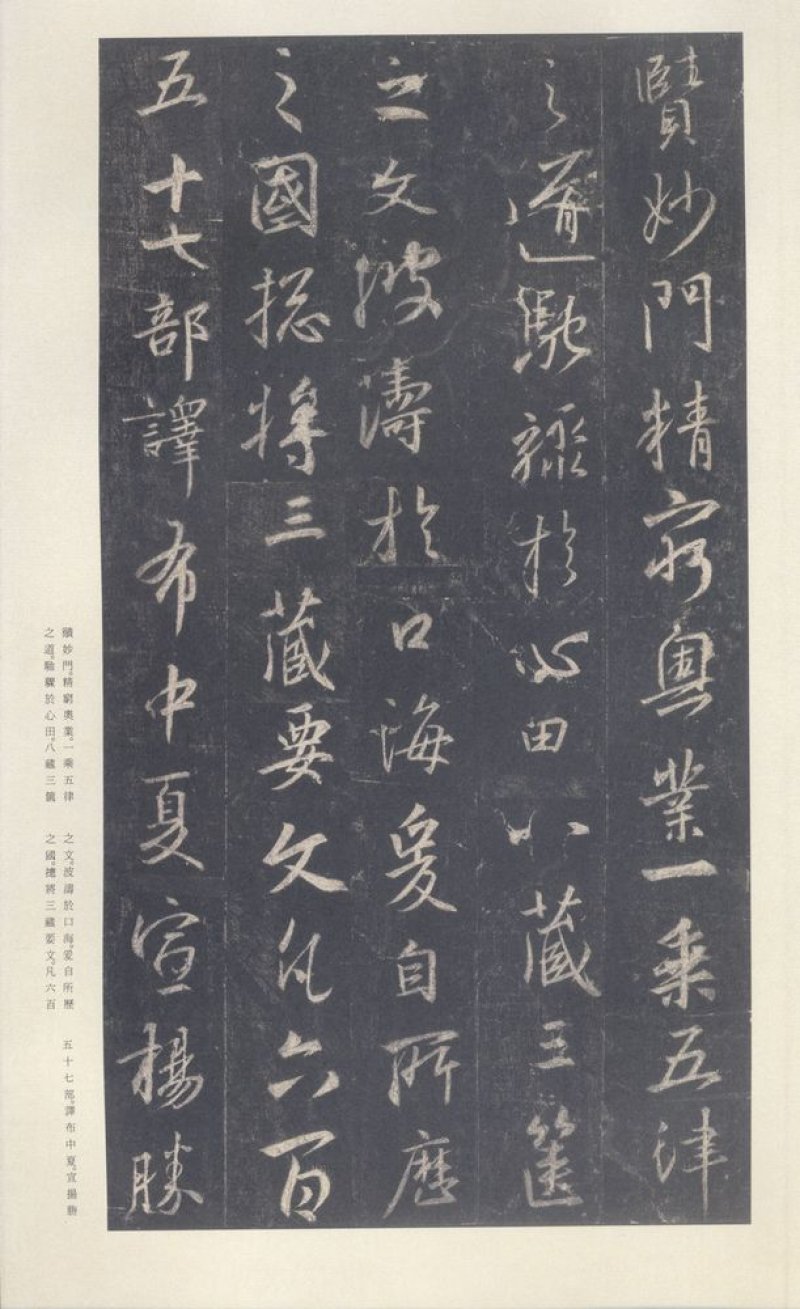 賾妙門精窮奧業一乘五律
之道馳驟於心田八藏三篋
之文波濤於口海爰自所歷
之國揔將三藏要文凡六百
五十七部譯布中夏宣楊勝
賾妙門。精窮奧業。一乘五律
之道。馳驟於心田。八藏三篋
之文。波濤於口海。爰自所歷
之國。總將三藏要文。凡六百
五十七部。譯布中夏。宣揚勝